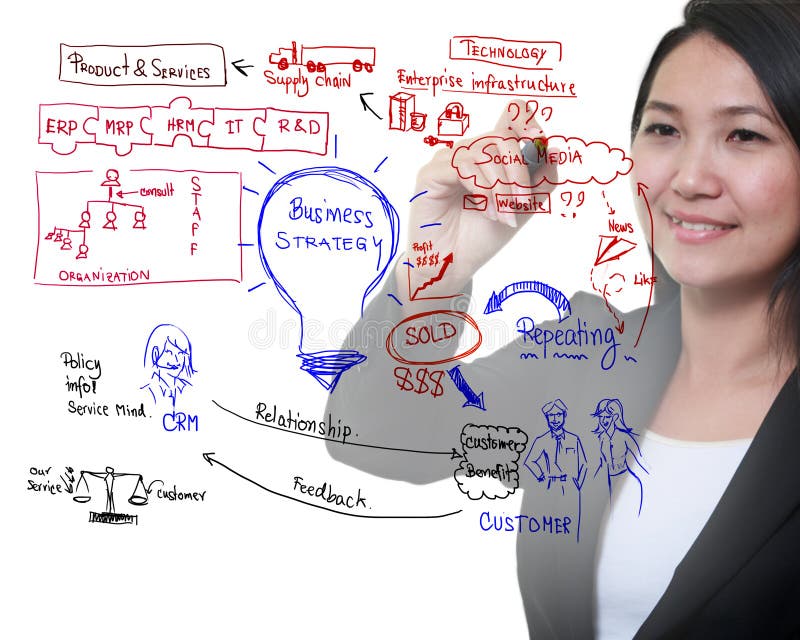 TECHNOLOGY
PRODUCT & SERVICES
Supply Chain
Enterprise infrastructure
ERP MRP HRM IT R&D
???
SOCIAL MEDIA
Website
??
consult
STAFF
ORGANIZATION
BUSINESS
STRATEGY
News
Like
Profit
$$$$
SOLD
$$$
Repeating
Policy
info!
Service Mind.
CRM
Relationship.
Customer
Benefit
our
Service
customer
Feedback.
CUSTOMER
dreamstime